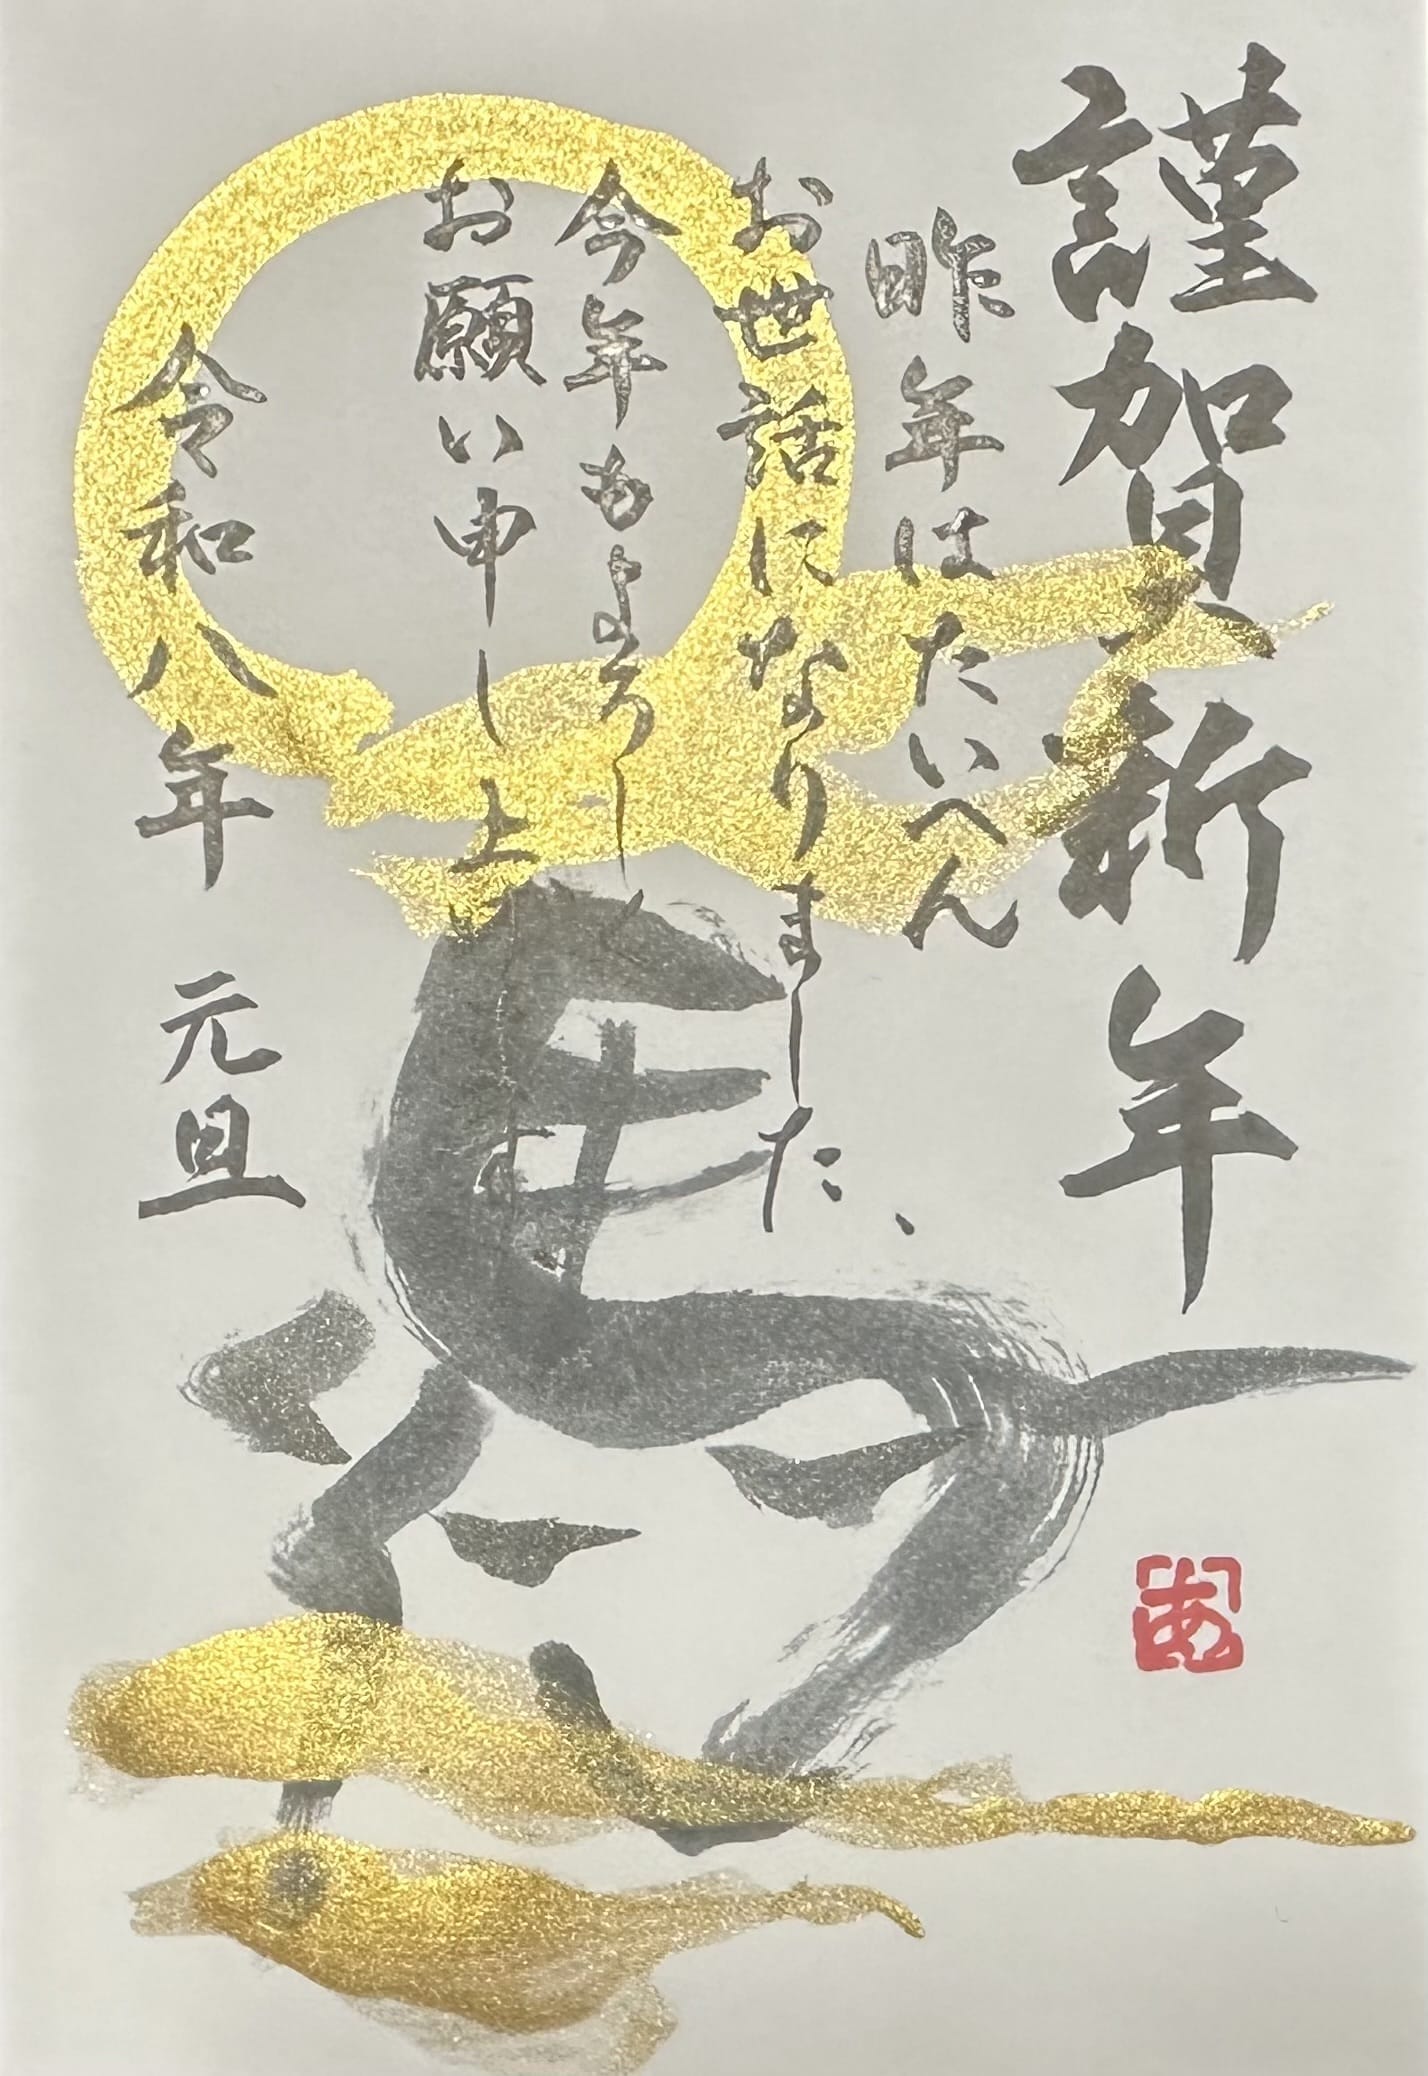 謹賀新年
昨年はたいへん
お世話になりました、
今年もよろしく
お願い申し上げます
令和八年 元旦
馬
あ